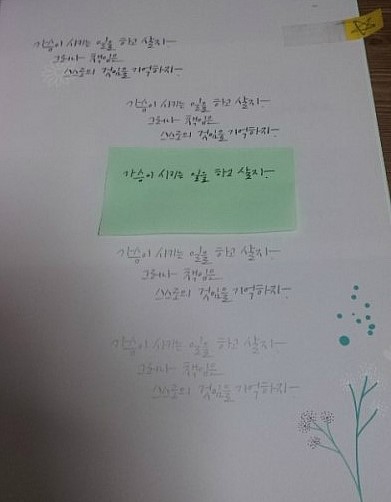 가슴이 시키는 일을 하고 살지~
그러나 책임은
스스로의 것임을 기억하지~
가슴이 시키는 일을 하고 살지~
그러나 책임은
스스로의 것임을 기억하지~
가슴이 시키는 일을 하고 살지~
가슴이 시키는 일을 하고 살지~
그러나 책임은
스스로의 것임을 기억하지~
가슴이 시키는 일을 하고 살지~
그러나 책임은
스스로의 것임을 기억하지~